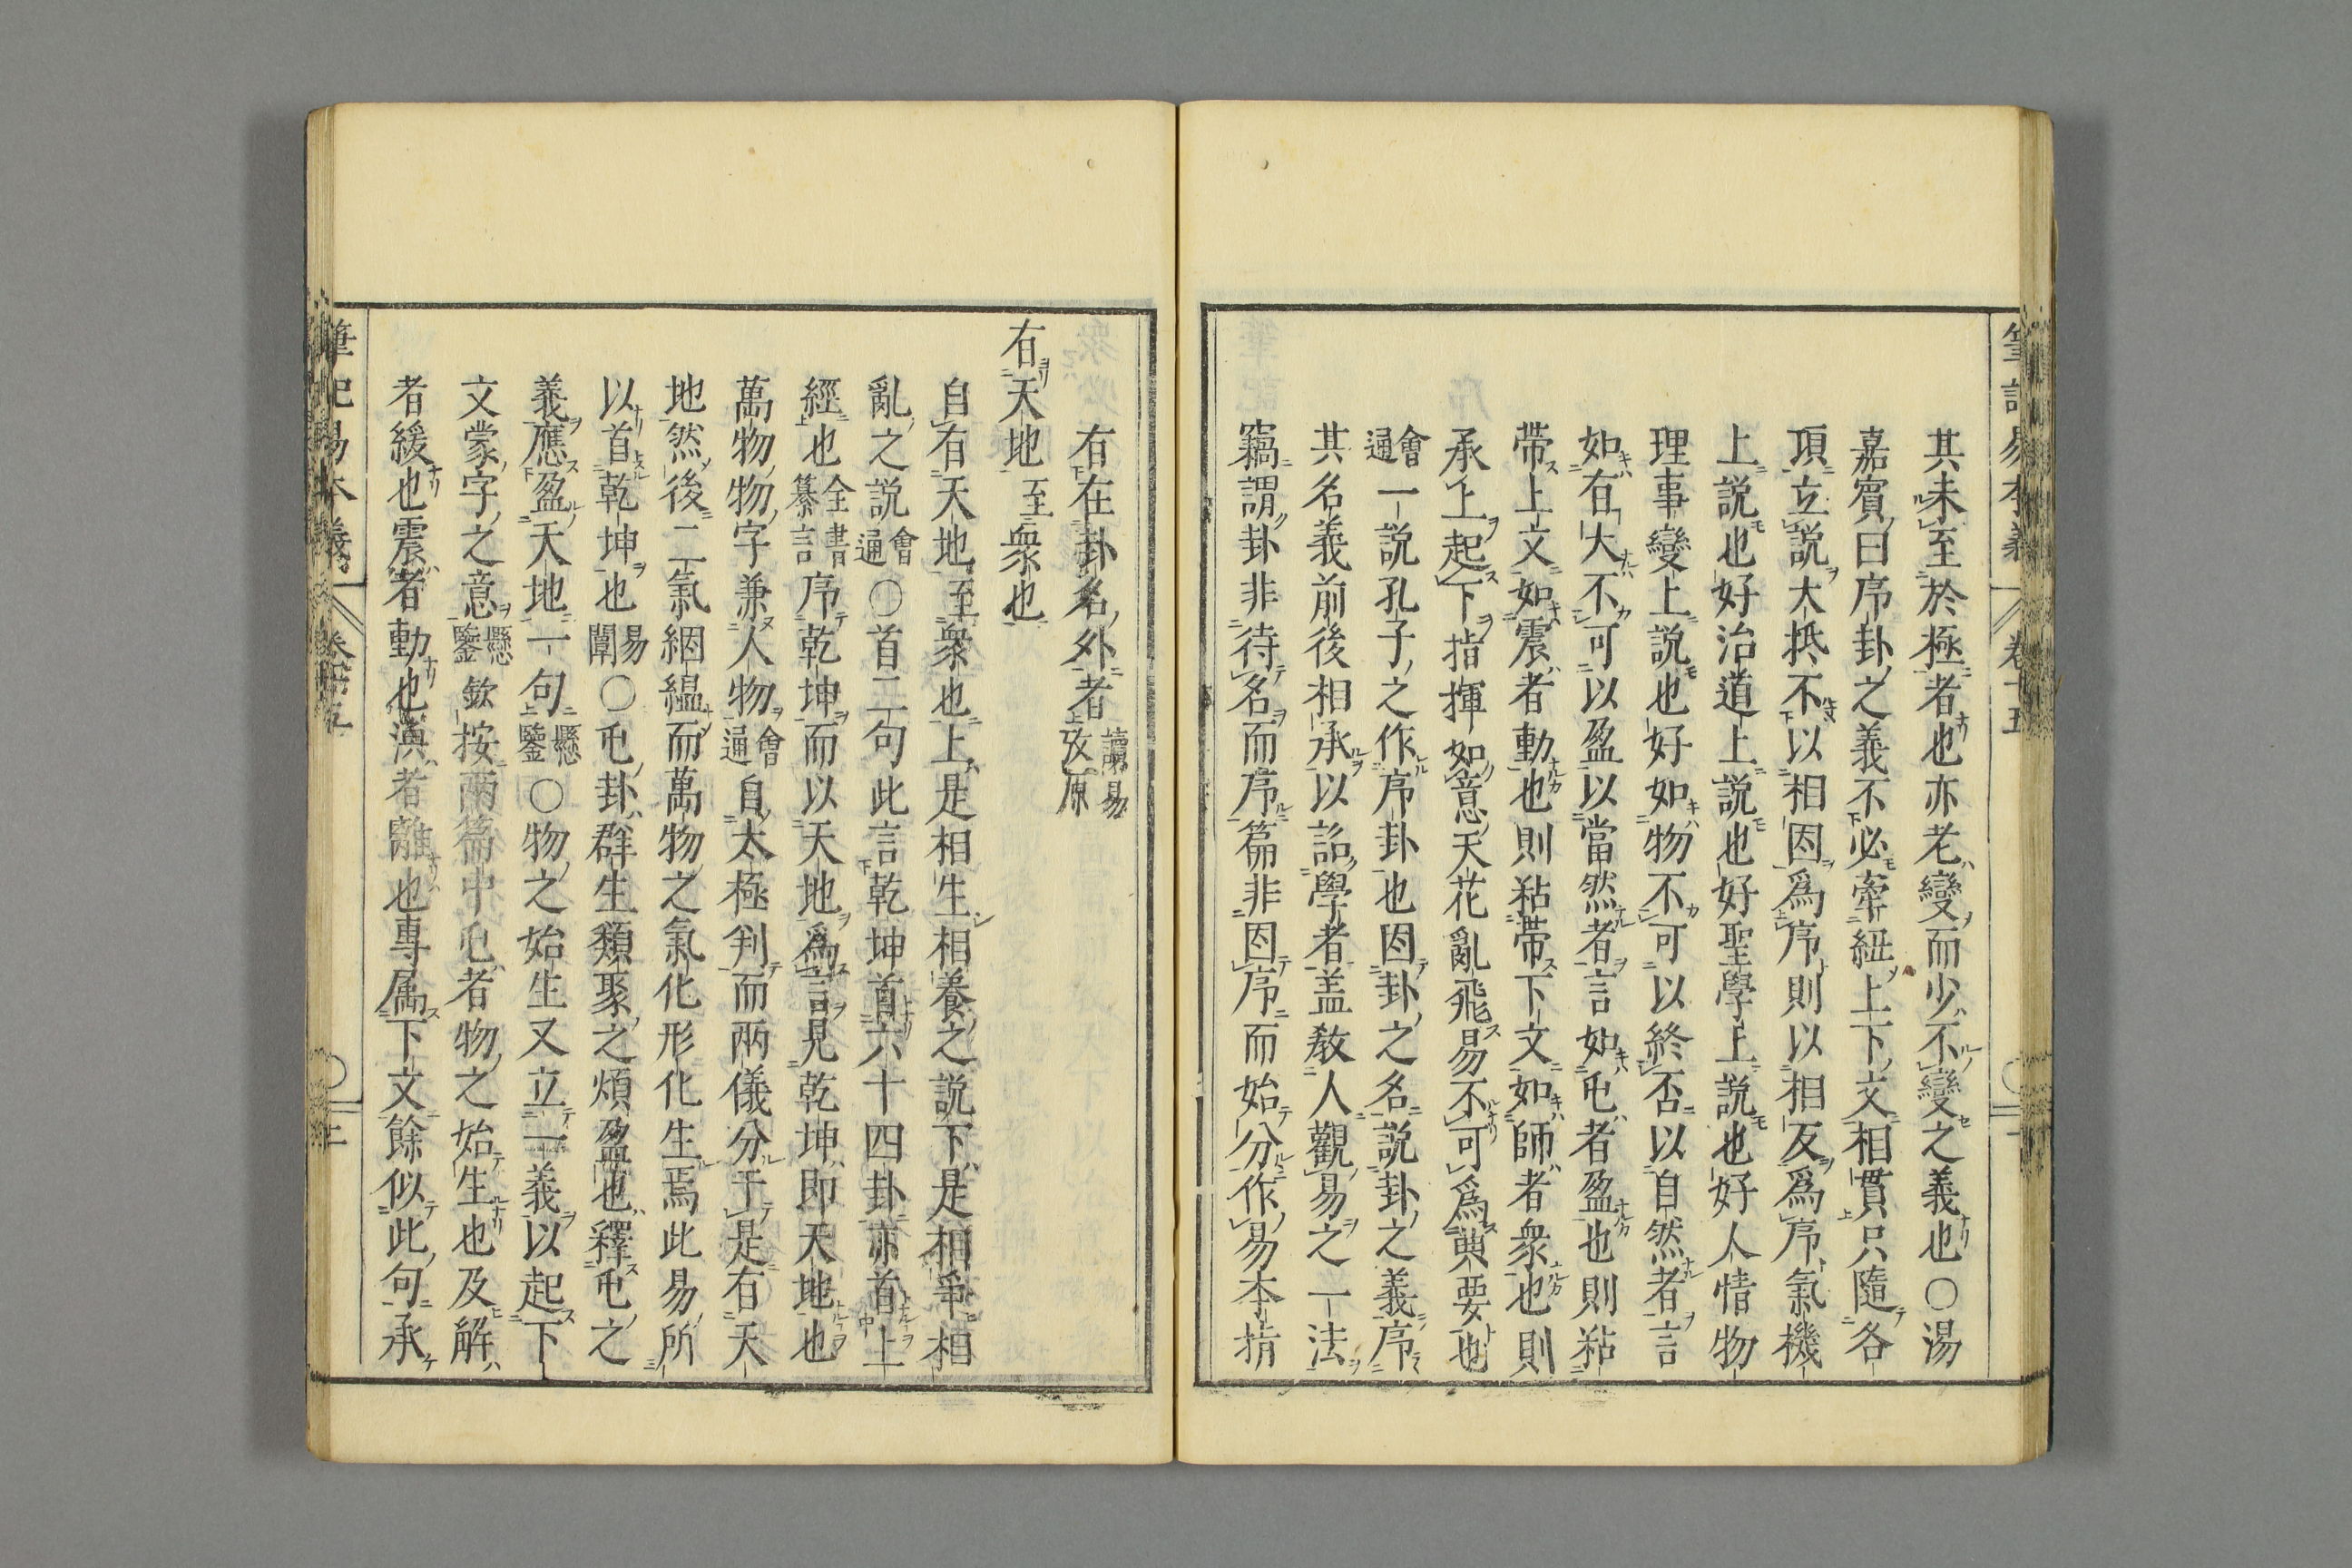 其未至於極者也亦老變而少不變之義也〇湯
嘉賓曰序卦之義不必牽紐上下文相貫只隨各
項立説大抵不以相因爲序則以相反爲序氣機
上説也好治道上説也好聖學上説也好人情物
理事變上説也好如物不可以終否以自然者言
如有大不可以盈以當然者言如屯者盈也則粘
帶上文如震者動也則粘帶下文如師者衆也則
承上起下指揮如意天花亂飛易不可爲典要也
會通一説孔子之作序卦也因卦之名説卦之義序
其名義前後相承以詔學者盖教人觀易之一法
竊謂卦非待名而序篇非因序而始分作易本指
筆記易本義 卷十五
右在卦名外者讀易攷原
右天地至衆也
自有天地至衆也上是相生相養之説下是相爭相
亂之説會通〇首二句此言乾坤首六十四卦亦首上
經也全書纂言序乾坤而以天地爲言見乾坤即天地也
萬物物字兼人物會通自太極判而兩儀分于是有天
地然後二氣絪緼而萬物之氣化形化生焉此易所
以首乾坤也易闡〇屯卦群生類聚之煩盈也釋屯之
義應盈天地一句懸鑒〇物之始生又立一義以起下
文蒙字之意懸鑒欽按兩篇中屯者物之始生也及解
者緩也震者動也渙者離也專属下文餘似此句承
筆記易本義